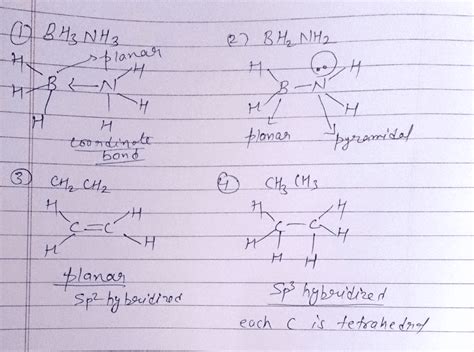 ① BH3 NH3
planar
H H
H B ← N H
H H
coordinate
bond
2) BH2 NH2
H •• H
B — N
H H
planar pyramidal
③ CH2 CH2
H H
C = C
H H
planar
Sp2 hybridized
④ CH3 CH3
H H
C — C
H H H
H
Sp3 hybridized
each C is tetrahedral